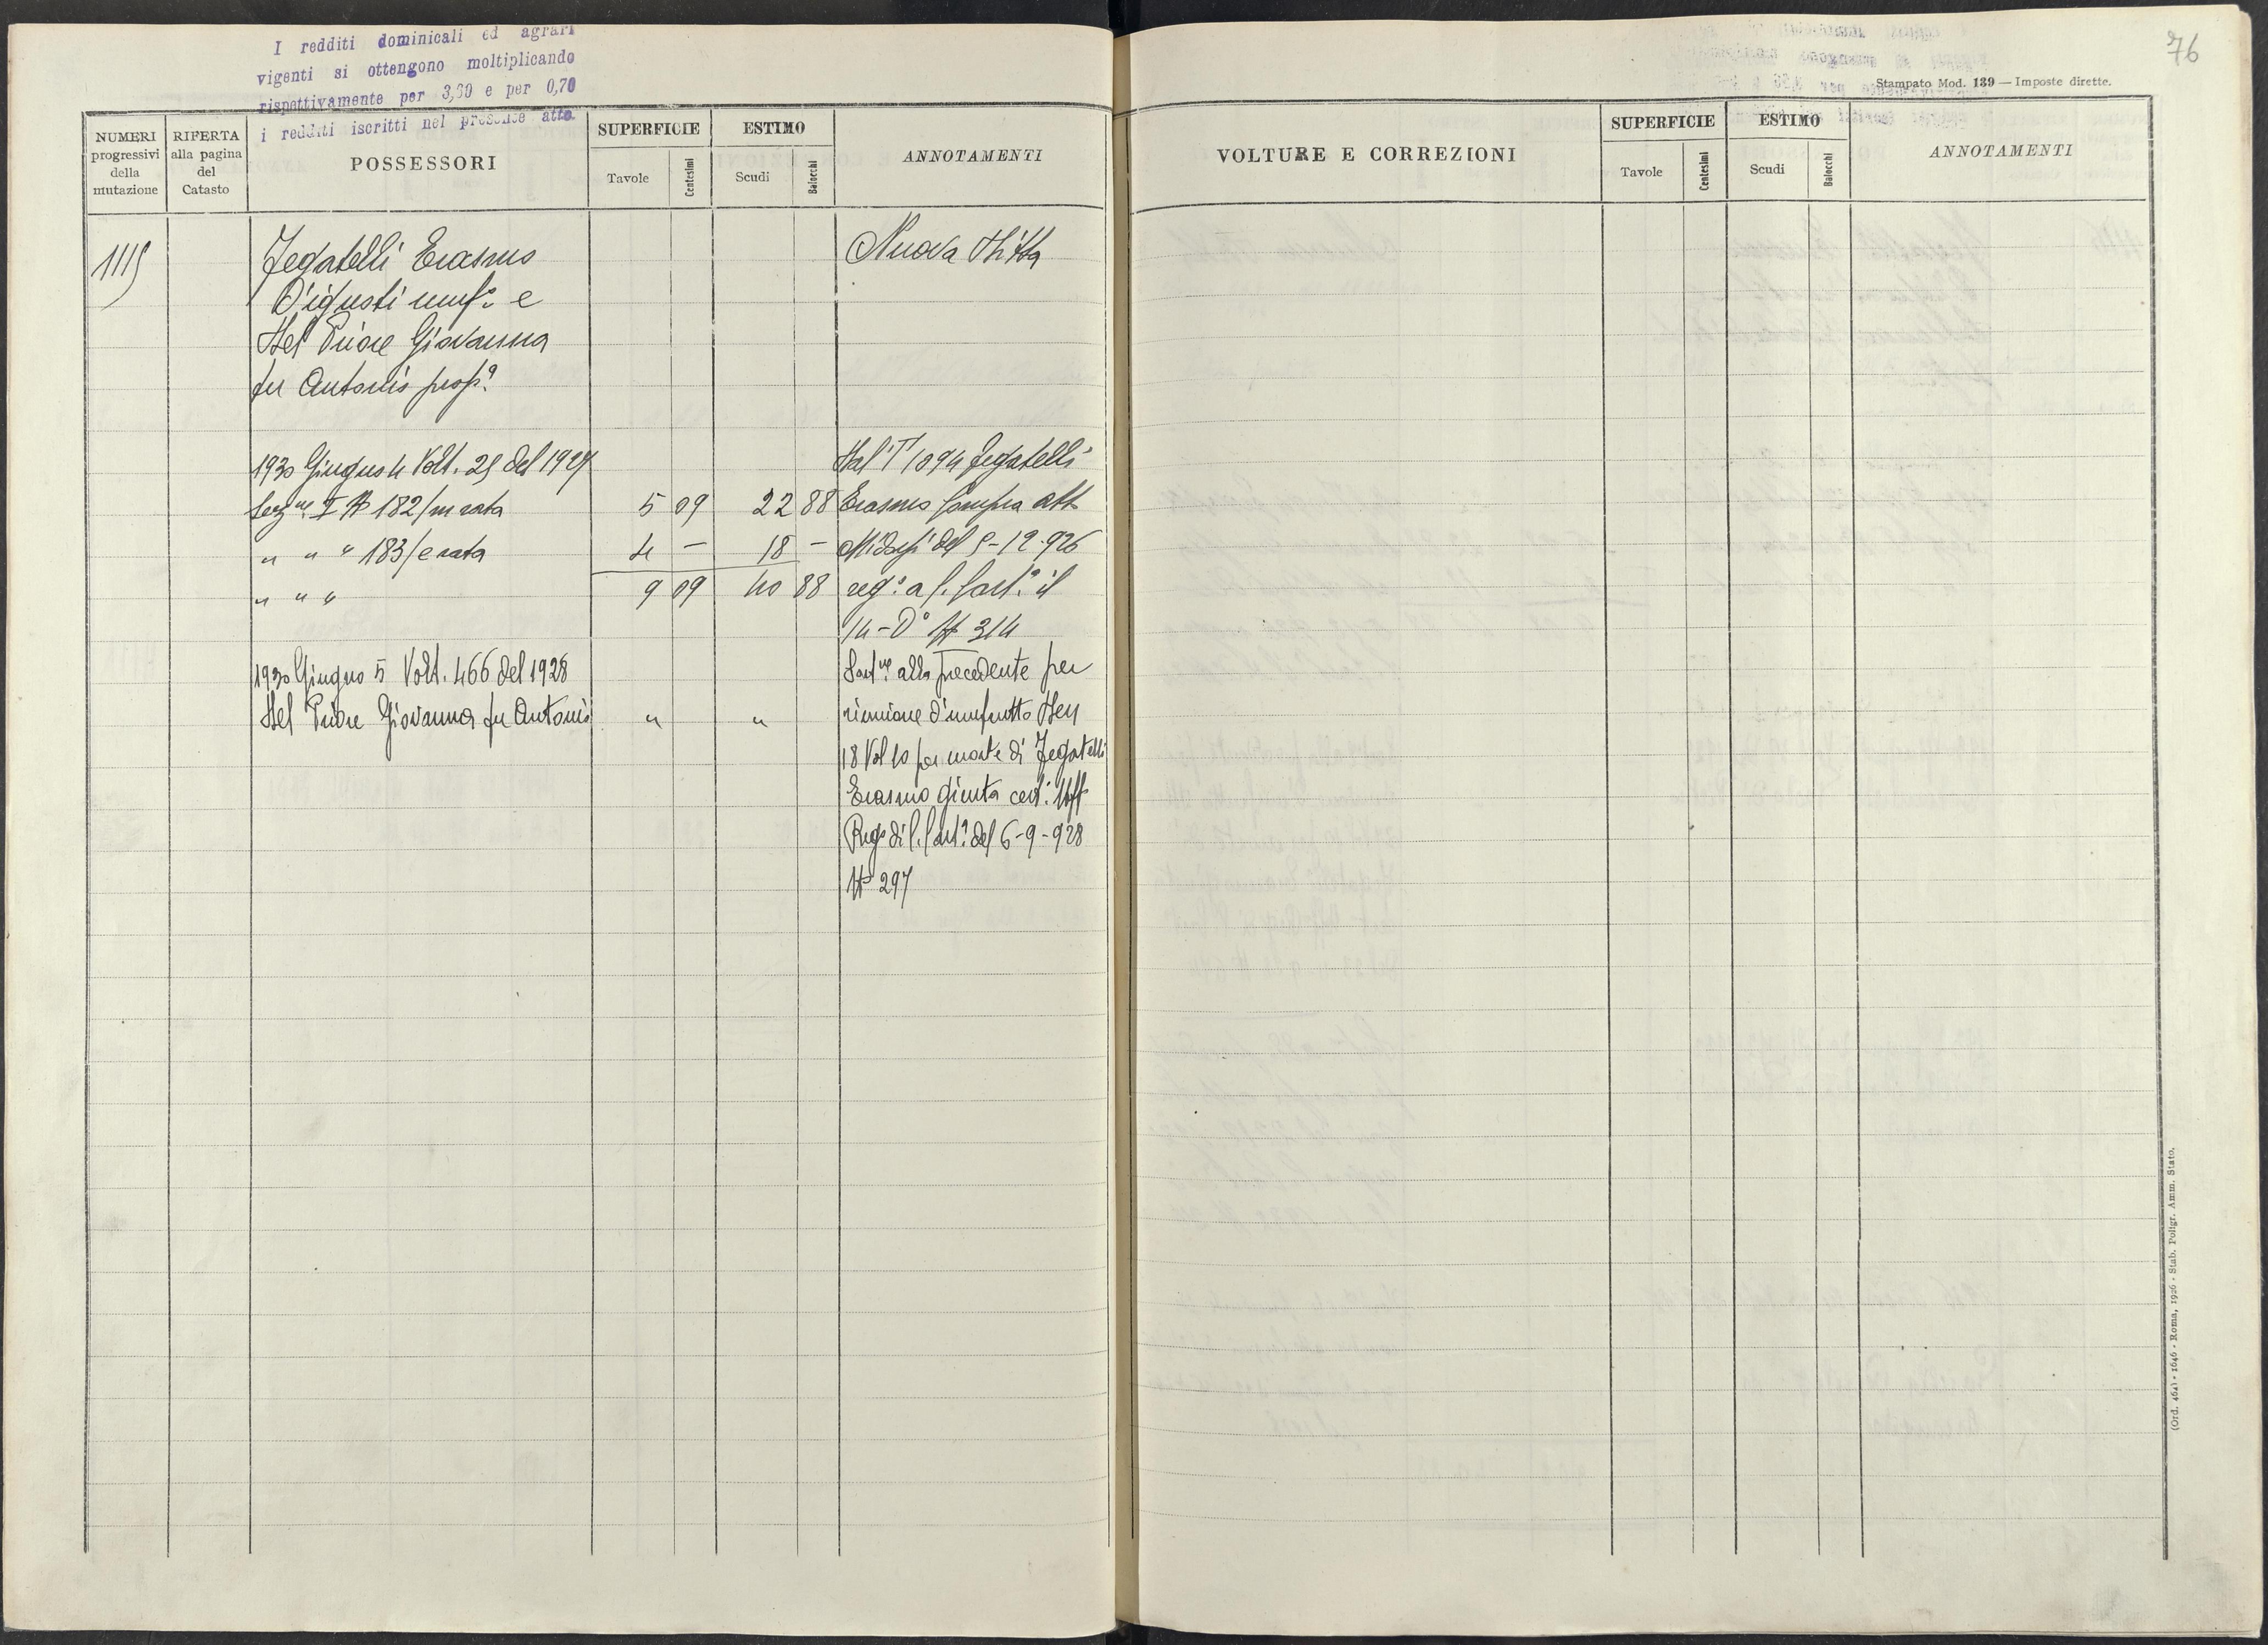 I redditi dominicali ed agrari
vigenti si ottengono moltiplicando
rispettivamente per 3,30 e per 0,70
i redditi iscritti nel presente atto.
NUMERI progressivi della mutazione
RIFERTA alla pagina del Catasto
POSSESSORI
SUPERFICIE
Tavole
Centesimi
ESTIMO
Scudi
Baiocchi
ANNOTAMENTI
1115
Segatelli Erasmo
usuf.º e
Del Priore Giovanna
fu Antonio prop.ª
Nuova Ditta
1930 Giugno 4 Volt. 25 del 1927
Sez.ne I N 182/m rata 5 09 22 88
" " " 183/e rata 4 — 18 —
" " " 9 09 40 88
Dal T 1094 Segatelli
Erasmo Compra att
del 5-12-926
reg.º a C. Cast.ª il
14-Dº N 314
1930 Giugno 5 Volt. 466 del 1928
Del Priore Giovanna fu Antonio " "
alla precedente per
riunione d'usufrutto Den
18 Vol 10 per morte di Segatelli
Erasmo giusta cert. Uff
Reg.º di C. Cast.ª del 6-9-928
N 297
76
Stampato Mod. 139 — Imposte dirette.
VOLTURE E CORREZIONI
SUPERFICIE
Tavole
Centesimi
ESTIMO
Scudi
Baiocchi
ANNOTAMENTI
(Ord. 464) - 1646 - Roma, 1926 - Stab. Poligr. Amm. Stato.